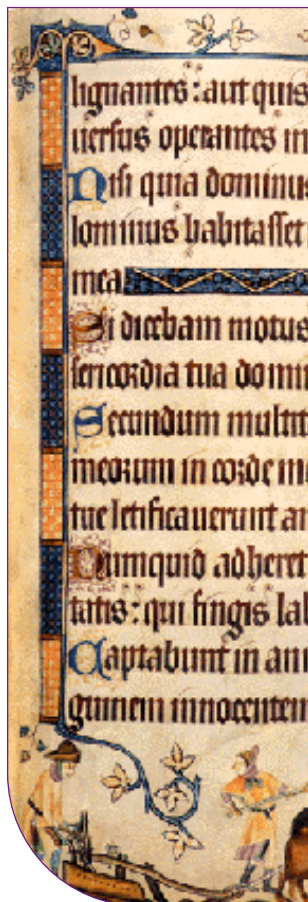 lignantes: aut quis
uersus operantes in
Nisi quia dominus
lominus habitasset
mea
Si dicebam motus
sericordia tua domin
Secundum multit
meorum in corde m
tue letificauerunt an
Numquid adheret
tatis: qui fingis lab
Captabunt in ani
guinem innocentem